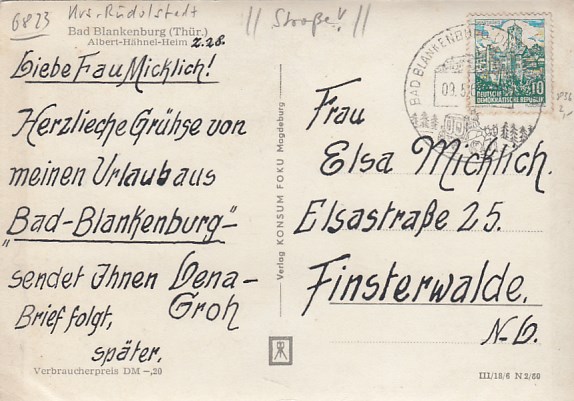 6823 Krs. Rudolstadt
Bad Blankenburg (Thür.)
Albert-Hähnel-Heim
Liebe Frau Micklich!
Herzlieche Grühse von
meinen Urlaub aus
"Bad-Blankenburg"
sendet Ihnen Lena-
Groh
Brief folgt,
später.
Verbraucherpreis DM -,20
Verlag KONSUM FOKU Magdeburg
// Straße! //
BAD BLANKENBURG
09.5
10
DEUTSCHE
DEMOKRATISCHE REPUBLIK
Frau
Elsa Micklich.
Elsastraße 25.
Finsterwalde.
N-L.
III/18/6 N 2/60